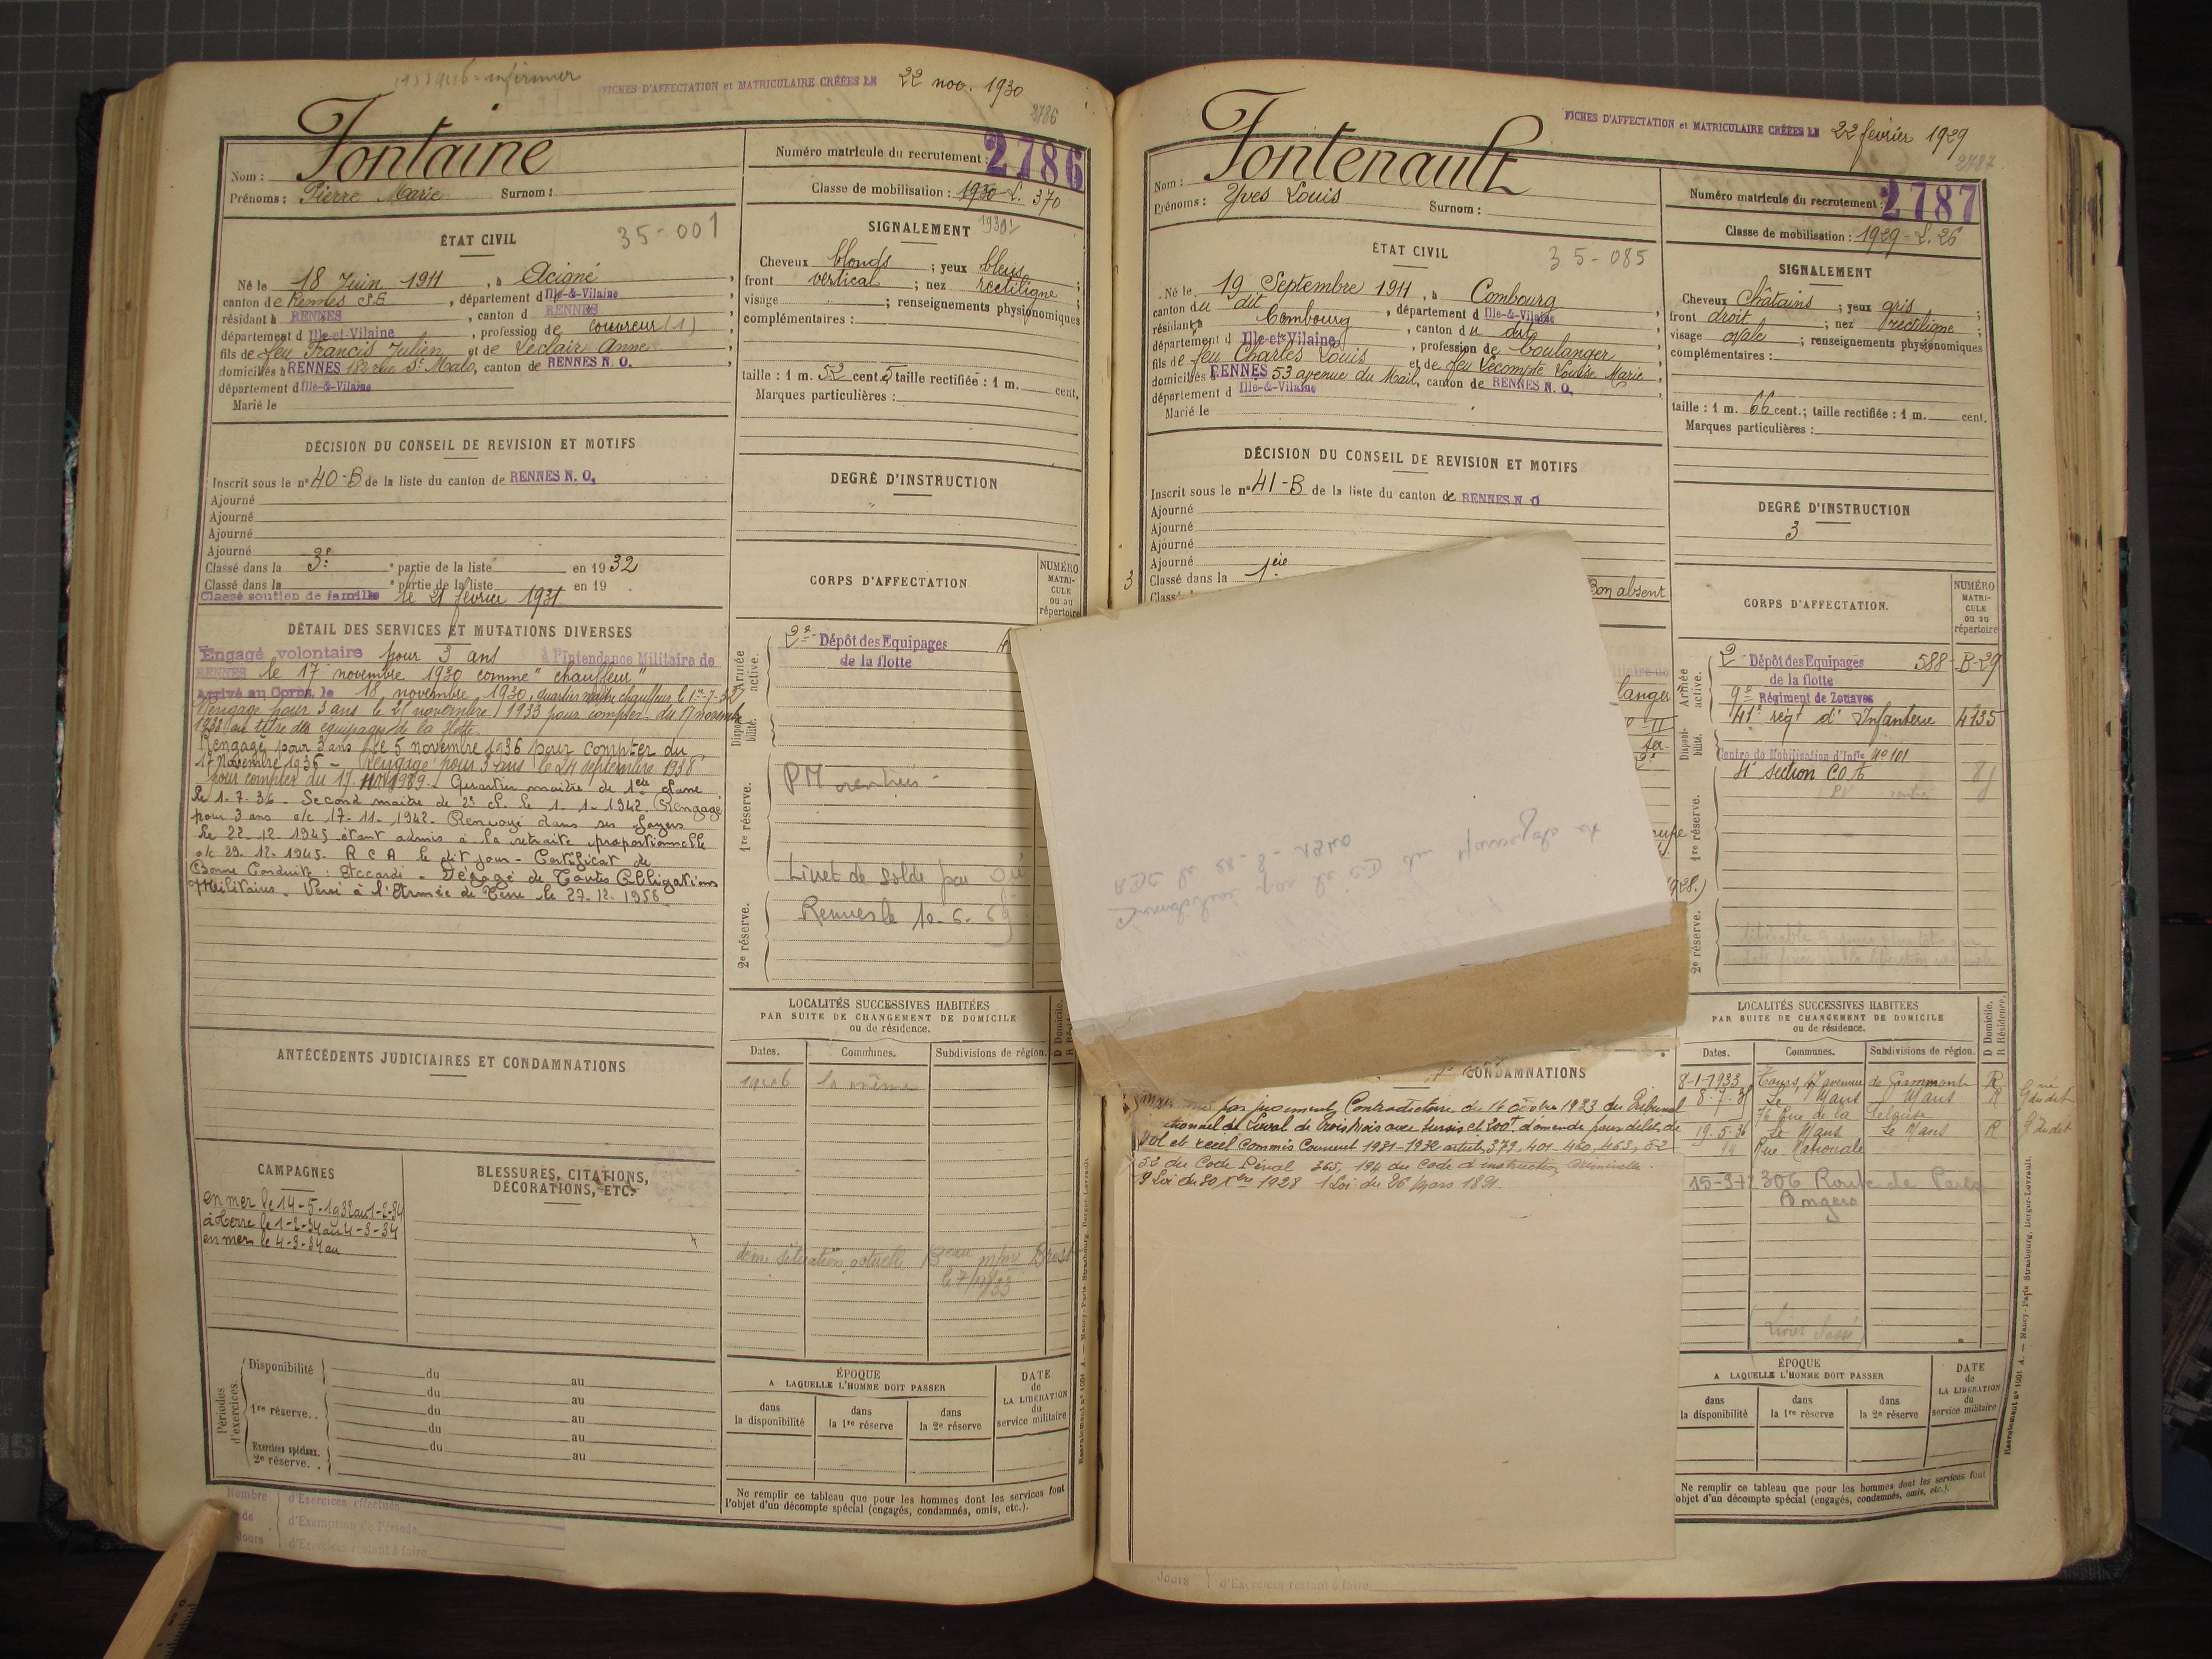 infirmier
FICHES D'AFFECTATION et MATRICULAIRE CRÉÉES LE 22 nov. 1930
2786
Nom : Fontaine
Prénoms : Pierre Marie Surnom :
Numéro matricule du recrutement : 2786
Classe de mobilisation : 1930-L. 370
ÉTAT CIVIL 35-001
Né le 18 Juin 1911, à Acigné,
canton de Rennes S.E., département d Ille-&-Vilaine
résidant à RENNES, canton d RENNES
département d Ille-et-Vilaine, profession de couvreur (1),
fils de feu Francis Julien et de Leclair Anne
domiciliés à RENNES 182 rue St Malo, canton de RENNES N. O.,
département d Ille-&-Vilaine
Marié le
SIGNALEMENT
Cheveux blonds ; yeux bleus ;
front vertical ; nez rectiligne ;
visage ; renseignements physionomiques
complémentaires :
taille : 1 m. 52 cent. 5 taille rectifiée : 1 m. cent.
Marques particulières :
DÉCISION DU CONSEIL DE REVISION ET MOTIFS
Inscrit sous le n° 40-B de la liste du canton de RENNES N. O.
Ajourné
Ajourné
Ajourné
Ajourné
Classé dans la 3e partie de la liste en 1932
Classé dans la ° partie de la liste en 19
Classé soutien de famille le 21 février 1931
DEGRÉ D'INSTRUCTION
CORPS D'AFFECTATION
NUMÉRO
MATRI-
CULE
ou au
répertoire
DÉTAIL DES SERVICES ET MUTATIONS DIVERSES
Engagé volontaire pour 3 ans à l'Intendance Militaire de
RENNES le 17 novembre 1930 comme "chauffeur"
Arrivé au Corps le 18 novembre 1930, quartier maître chauffeur le 1er-7-32
Rengagé pour 3 ans le 21 novembre 1933 pour compter du 17 novembre
1933 au titre des équipages de la flotte.
Rengagé pour 3 ans le 5 novembre 1936 pour compter du
17 Novembre 1936 - Rengagé pour 3 ans le 24 septembre 1938
pour compter du 17 nov 1939. Quartier maître de 1ere classe
le 1.7.36. Second maître de 2e cl. le 1-1-1942. Rengagé
pour 3 ans a/c 17-11-1942. Renvoyé dans ses foyers
le 22.12.1945 étant admis à la retraite proportionnelle
a/c 29.12.1945. R C A le dit jour - Certificat de
Bonne Conduite : Accordé - Dégagé de Toutes Obligations
Militaires. Versé à l'Armée de Terre le 27.12.1956
Armée active.
Disponibilité.
1re réserve.
2e réserve.
2e Dépôt des Equipages
de la flotte
PM rentrés
Livret de solde par
Rennes le 10-6-
LOCALITÉS SUCCESSIVES HABITÉES
PAR SUITE DE CHANGEMENT DE DOMICILE
ou de résidence.
Dates. Communes. Subdivisions de région.
la même
dem. situation actuelle Brest
le 7/11/33
ANTÉCÉDENTS JUDICIAIRES ET CONDAMNATIONS
CAMPAGNES
en mer le 14-5-1932 au 1-2-34
à terre le 1-2-34 au 4-3-34
en mer le 4-3-34 au
BLESSURES, CITATIONS,
DÉCORATIONS, ETC.
Périodes d'exercices.
Disponibilité du au
1re réserve.. du au
du au
du au
Exercices spéciaux. du au
2e réserve..
ÉPOQUE
A LAQUELLE L'HOMME DOIT PASSER
dans la disponibilité
dans la 1re réserve
dans la 2e réserve
DATE
de
LA LIBÉRATION
du
service militaire
Ne remplir ce tableau que pour les hommes dont les services font
l'objet d'un décompte spécial (engagés, condamnés, omis, etc.).
Nombre d'Exercices effectués
de d'Exemption de Période
Jours d'Exercices restant à faire
FICHES D'AFFECTATION et MATRICULAIRE CRÉÉES LE 22 février 1929
2787
Nom : Fontenault
Prénoms : Yves Louis Surnom :
Numéro matricule du recrutement : 2787
Classe de mobilisation : 1929-L. 26
ÉTAT CIVIL 35-085
Né le 19 Septembre 1911, à Combourg
canton du dit, département d Ille-&-Vilaine
résidant à Combourg, canton du dit
département d Ille-et-Vilaine, profession de boulanger,
fils de feu Charles Louis et de feu Lecompte Louise Marie,
domiciliés à RENNES 53 avenue du Mail, canton de RENNES N. O.,
département d Ille-&-Vilaine
Marié le
SIGNALEMENT
Cheveux châtains ; yeux gris ;
front droit ; nez rectiligne ;
visage ovale ; renseignements physionomiques
complémentaires :
taille : 1 m. 66 cent.; taille rectifiée : 1 m. cent.
Marques particulières :
DÉCISION DU CONSEIL DE REVISION ET MOTIFS
Inscrit sous le n° 41-B de la liste du canton de RENNES N. O
Ajourné
Ajourné
Ajourné
Ajourné
Classé dans la 1ere
Bon absent
DEGRÉ D'INSTRUCTION
3
CORPS D'AFFECTATION.
NUMÉRO
MATRI-
CULE
ou au
répertoire
Armée active.
Disponibilité.
1re réserve.
2e réserve.
2 Dépôt des Equipages 588-B-29
de la flotte
9e Régiment de Zouaves
41e régt d'Infanterie 4135
Centre de Mobilisation d'Infie N° 101
4e section COA
LOCALITÉS SUCCESSIVES HABITÉES
PAR SUITE DE CHANGEMENT DE DOMICILE
ou de résidence.
Dates. Communes. Subdivisions de région.
D Domicile.
R Résidence.
8-1-1933 Tours, 17 avenue de Grammont R
Le Mans Mans R
76 Rue de la
19.5.36 Le Mans Le Mans R
Rue Nationale
306 Route de Paris
Angers
CONDAMNATIONS
par jugement Contradictoire du 14 octobre 1933 du Tribunal
Correctionnel de Laval de trois mois avec sursis et 200f d'amende pour délit de
vol et recel Commis Courant 1931-1932 articles 379, 401, 460, 463, 52
du Code Pénal 365, 194 du Code d'instruction Criminelle.
1 Loi du 26 Mars 1891.
ÉPOQUE
A LAQUELLE L'HOMME DOIT PASSER
dans la disponibilité
dans la 1re réserve
dans la 2e réserve
DATE
de
LA LIBÉRATION
du
service militaire
Ne remplir ce tableau que pour les hommes dont les services font
l'objet d'un décompte spécial (engagés, condamnés, omis, etc.).
Jours d'Exercices restant à faire